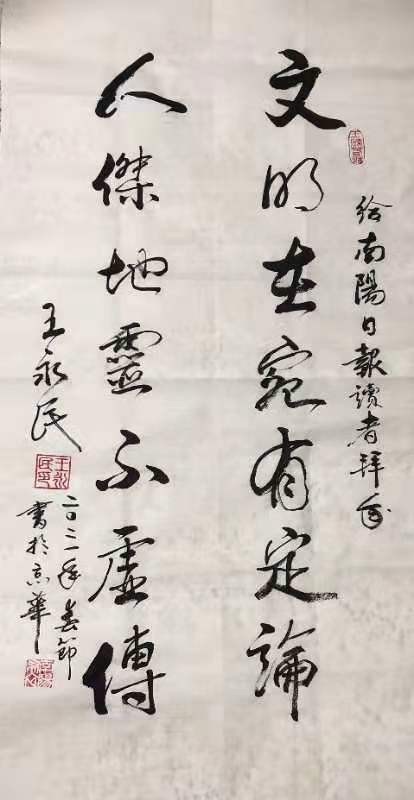 给南陽日報讀者拜年
文明在宛有定論
人傑地靈不虛傳
王永民
二〇二一年春節
書於京華
王永民印